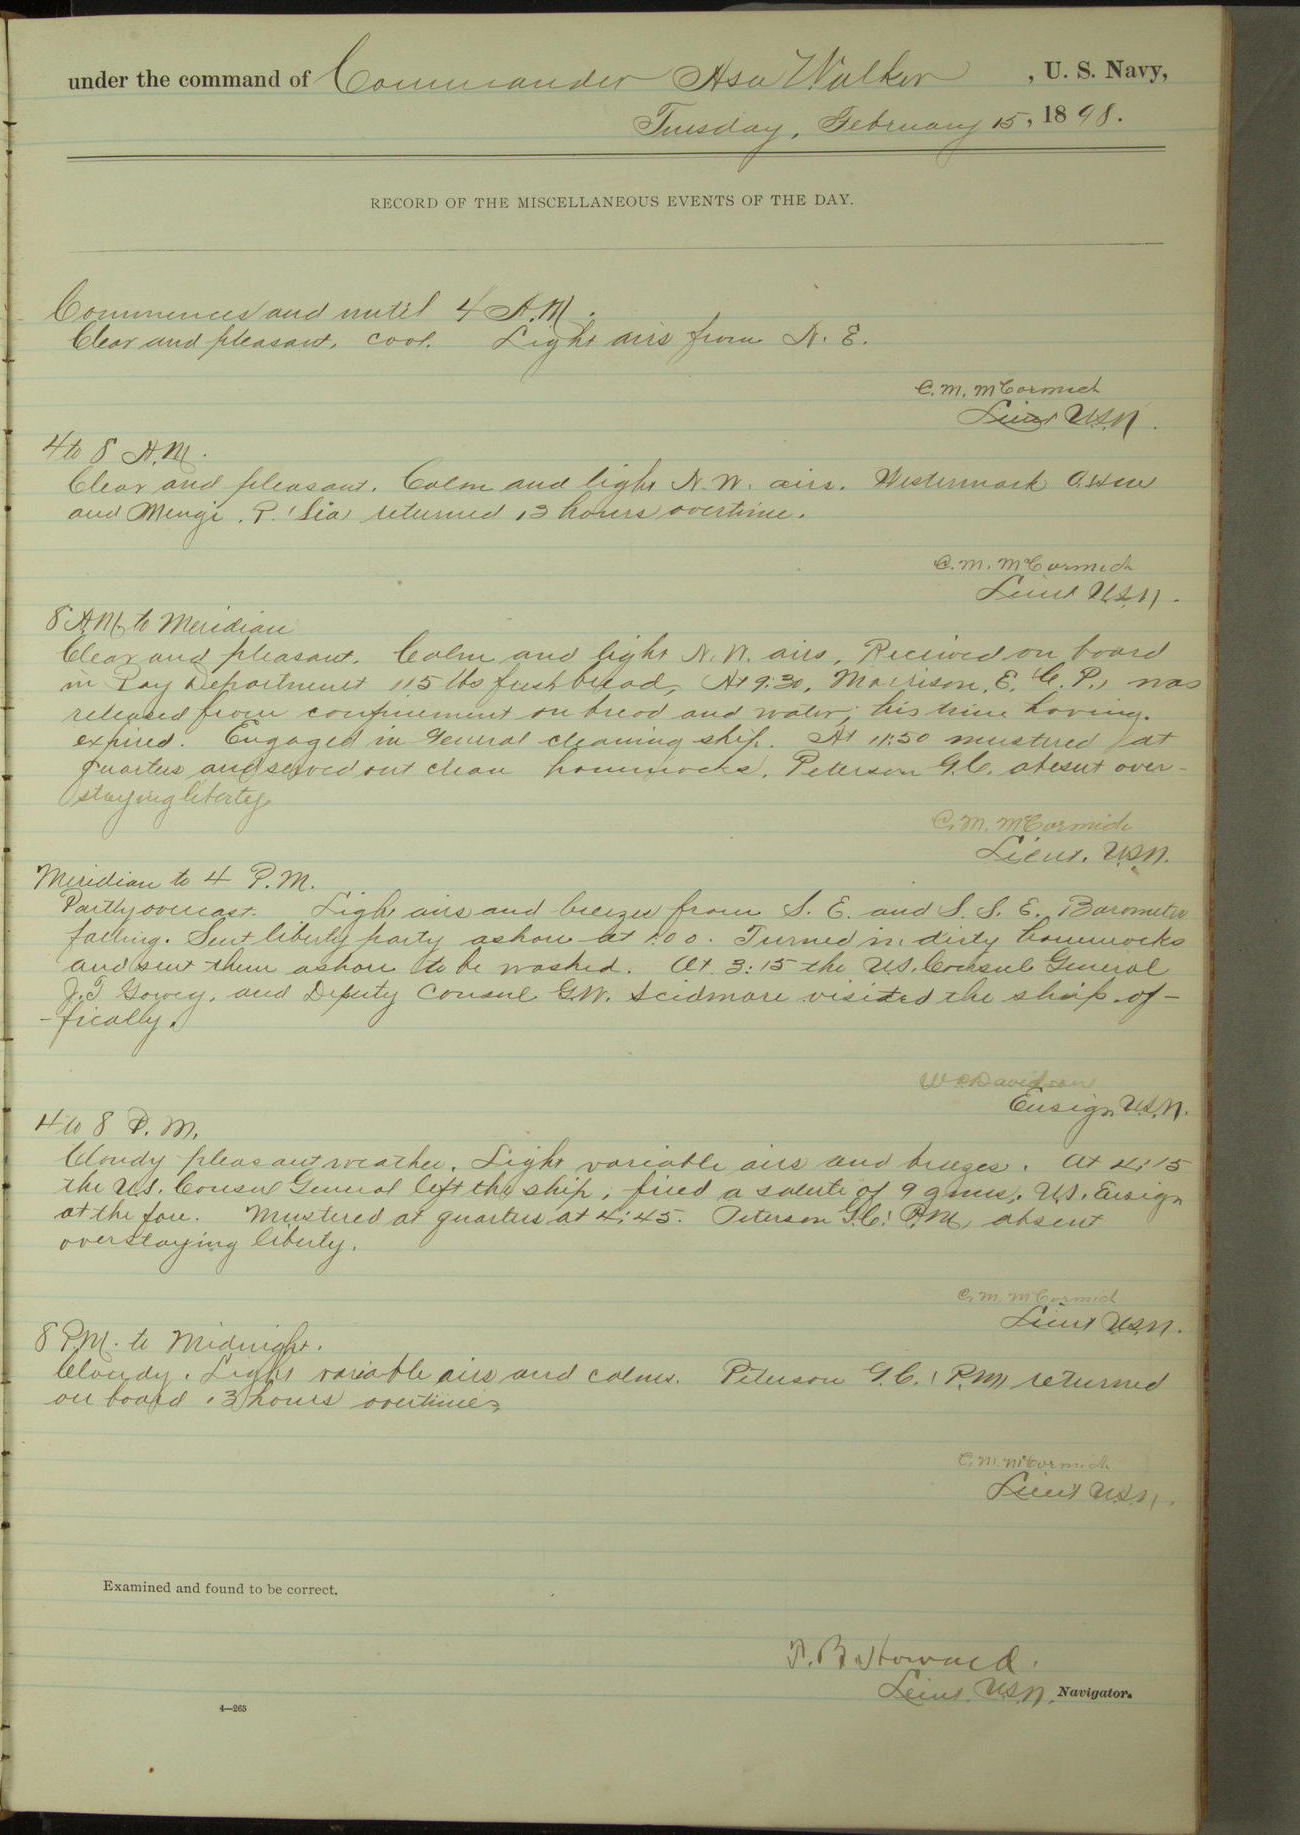 under the command of Commander Asa Walker, U. S. Navy,
Tuesday, February 15, 1898.
RECORD OF THE MISCELLANEOUS EVENTS OF THE DAY.
Commences and until 4 A.M.
Clear and pleasant, cool. Light airs from N. E.
C. M. McCormick
Lieut U.S.N.
4 to 8 A.M.
Clear and pleasant. Calm and light N.W. airs. Westermark
and returned 13 hours overtime.
C. M. McCormick
Lieut U.S.N.
8 A.M. to Meridian
Clear and pleasant. Calm and light N.W. airs. Received on board
in Pay Department 115 lbs fresh bread, At 9:30, Morrison, E. (C.P.) was
released from confinement on bread and water, his time having
expired. Engaged in general cleaning ship. At 11:50 mustered at
quarters and served out clean hammocks. Peterson G.C. absent over-
staying liberty.
C. M. McCormick
Lieut. U.S.N.
Meridian to 4 P.M.
Partly overcast. Light airs and breezes from S. E. and S. S. E. Barometer
falling. Sent liberty party ashore at 1:00. Turned in dirty hammocks
and sent them ashore to be washed. At 3:15 the U.S. Consul General
J.F Gowey, and Deputy Consul G.W. Scidmore visited the ship of-
-fically.
W. C. Davidson
Ensign U.S.N.
4 to 8 P.M.
Cloudy pleasant weather. Light variable airs and breezes. At 4:15
the U.S. Consul General left the ship, fired a salute of 9 guns. U.S. Ensign
at the fore. Mustered at quarters at 4:45. Peterson G.C. (P.M) absent
overstaying liberty.
C. M. McCormick
Lieut U.S.N.
8 P.M. to Midnight.
Cloudy. Light variable airs and calms. Peterson G.C. (P.M) returned
on board 13 hours overtime.
C. M. McCormick
Lieut U.S.N.
Examined and found to be correct.
T. B. Howard.
Lieut. U.S.N., Navigator.
4—263